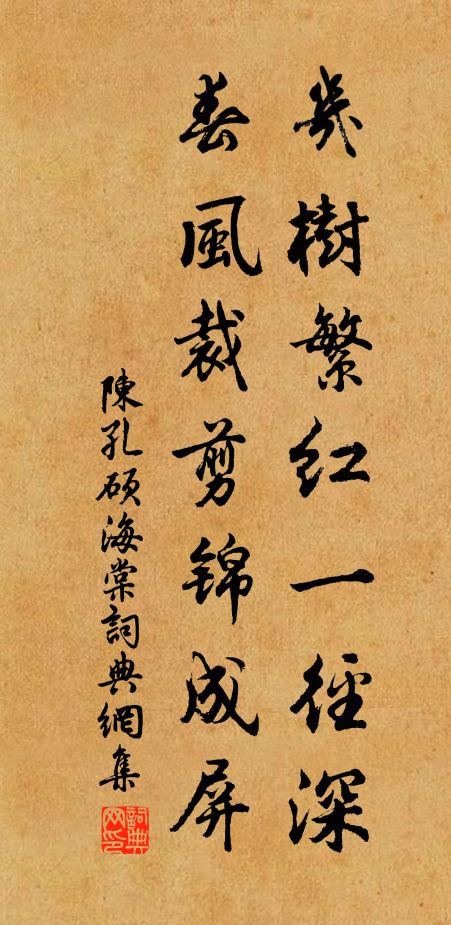 幾樹繁紅一徑深
春風裁剪錦成屏
陳孔碩海棠詞典網集
詞典網印